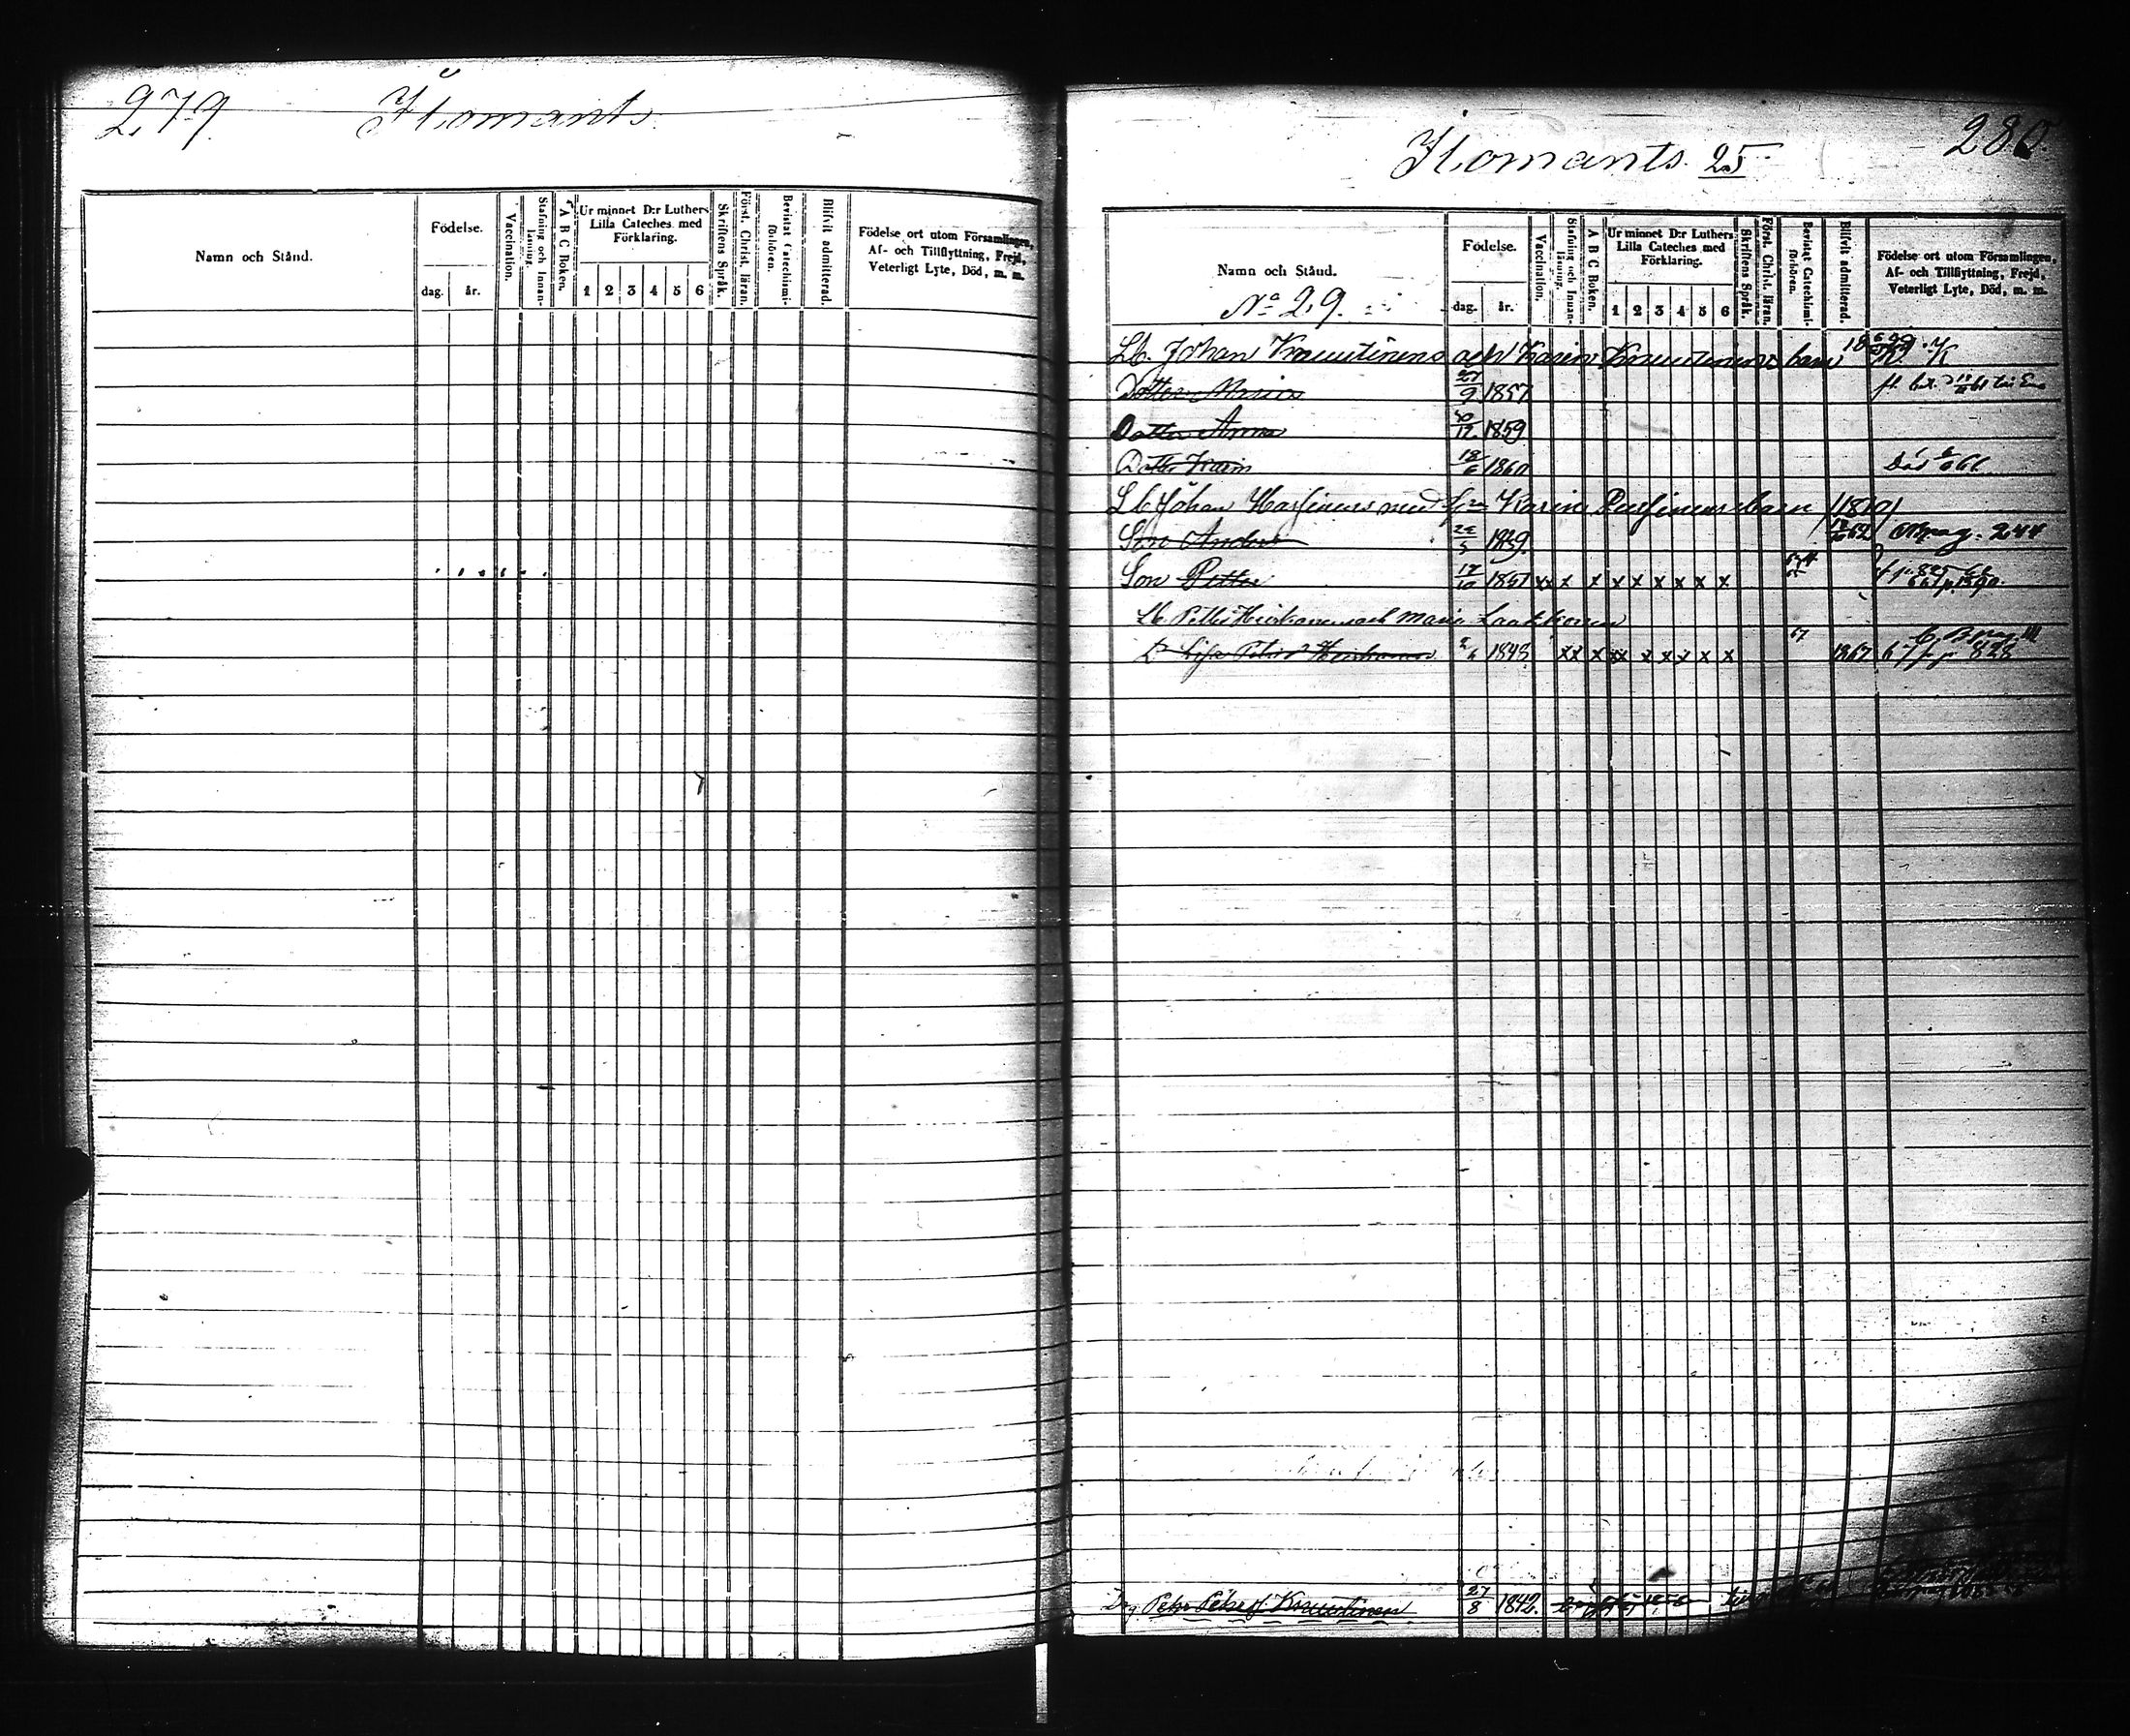 279 Ilomants
Namn och Stånd.
Födelse.
dag. år.
Vaccination.
Stafning och Innanläsning.
A B C Boken.
Ur minnet D:r Luthers Lilla Cateches med Förklaring.
1 2 3 4 5 6
Skriftens Språk.
Först. Christ. läran.
Bevistat Catechismiförhören.
Blifvit admitterad.
Födelse ort utom Församlingen, Af- och Tillflyttning, Frejd, Veterligt Lyte, Död, m. m.
Ilomants 25 280
Namn och Stånd.
No 29.
Födelse.
dag. år.
Vaccination.
Stafning och Innanläsning.
A B C Boken.
Ur minnet D:r Luthers Lilla Cateches med Förklaring.
1 2 3 4 5 6
Skriftens Språk.
Först. Christ. läran.
Bevistat Catechismiförhören.
Blifvit admitterad.
Födelse ort utom Församlingen, Af- och Tillflyttning, Frejd, Veterligt Lyte, Död, m. m.
Lb. Johan Knuutinens och Karin Knuutinens barn
Dotter Maria 27/9 1857
Dotter Anna 1859
Dotter Karin 18/6 1860 Död
Lb Johan med Karin barn
Son Anders 1839 pag. 244
Son Petter 17/10 1851 xx x x x x x x x x
Lb. Petter Heiskanen och Maria Laakkonen
Dr Lisa Petersd Heiskanen 1848 xx x xx x x x x x 67 1867 828
Drg Peter Petersf Knuutinen 27/8 1842.